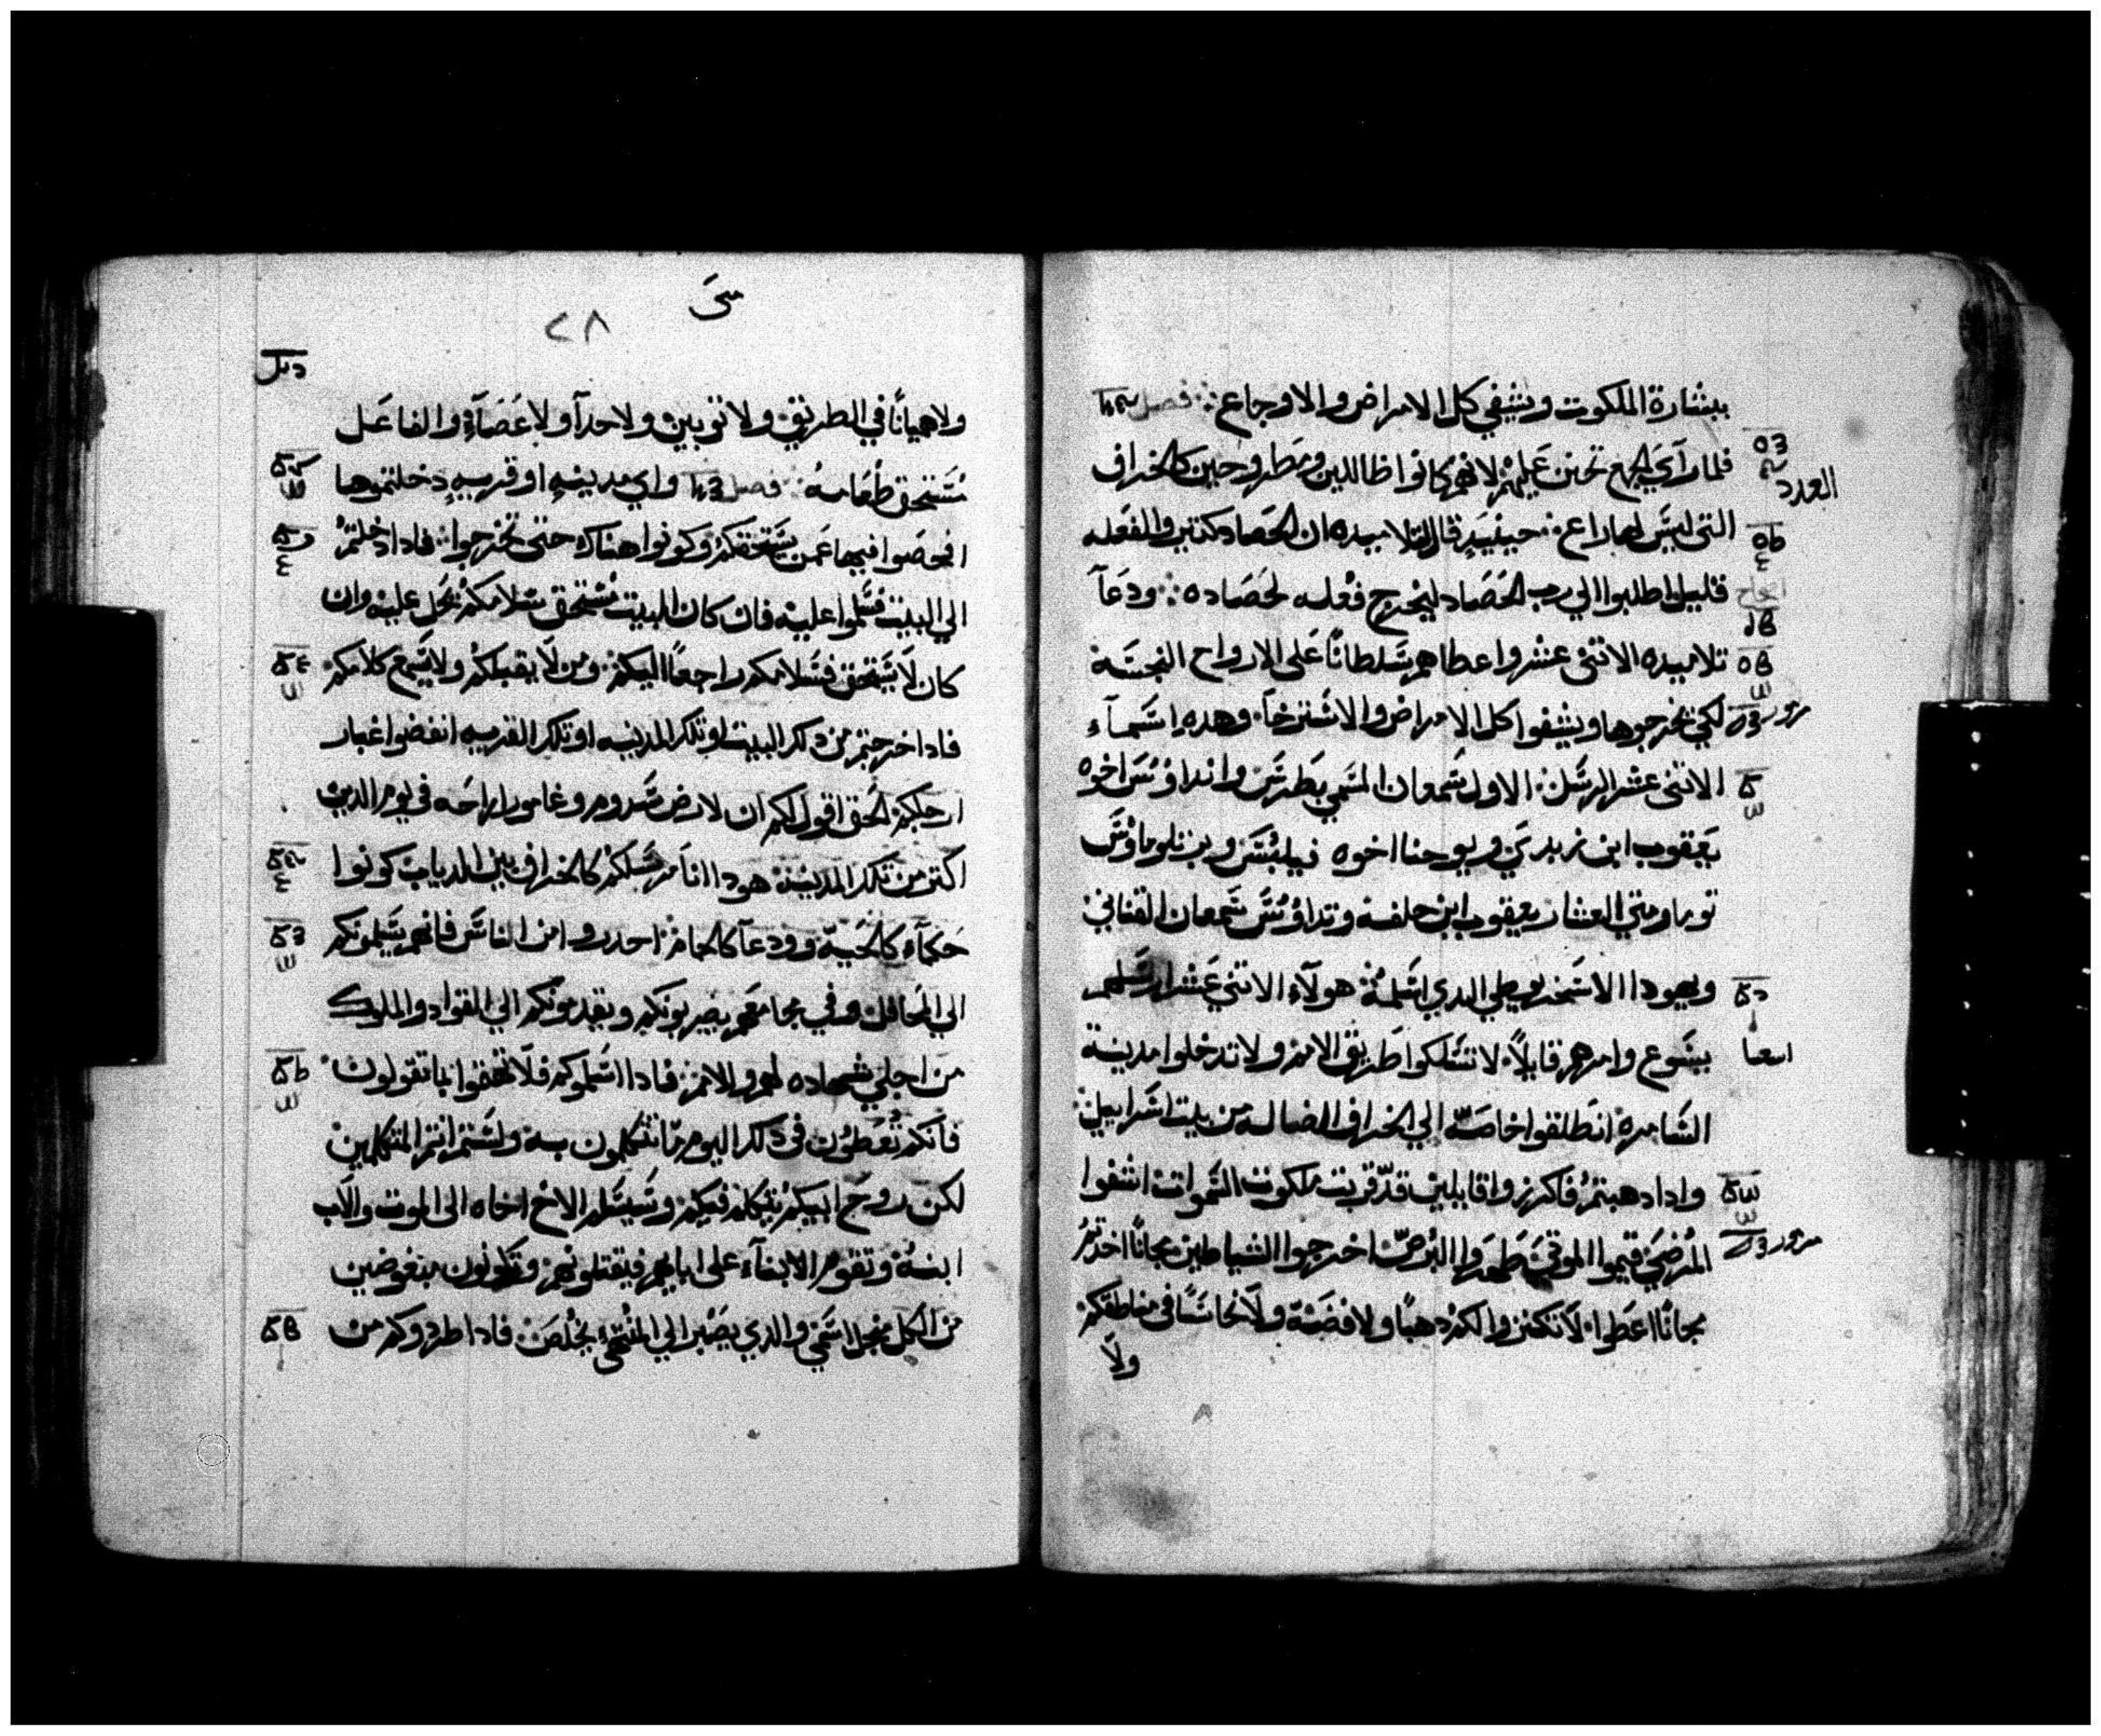 ببشارة الملكوت ويشفي كل الامراض والاوجاع ∴ فصل
فلما رآي الجمع تحنن عَليهمْ لانهم كانوا ظالين ومَطروحين كالخراف
العدد
التى ليسَ لها راع ∴ حينيدٍ قال لتلاميده ان الحَصاد كتير والفَعله
قليل اطلبوا الي رب الحَصَاد ليُخرج فعْله لحَصَاده ∴ ودعَآ
اصحاح
تلاميده الاتنىْ عشر واعطاهم سَلطانًا عَلى الارواح النجسَة
لكي يخرجوها ويشفوا كل الامراض والاسَترخآ وهدهِ اسَمآء
الاتنى عشر الرسَل الاول سَمعان المسَمي بَطرسَ واندراوْسَ اخوه
يَعقوب ابن زبدىَ ويوحنا اخوه فيلبُسَ وبرتلوماوْسَ
توما ومتي العشار يعقوب ابن حلفىه وتداوُسَ سَمعان القناني
ويهودا الاسَخريوطي الدي اسَلمهُ هولآء الاتني عَشر ارسَلهم
يسَوع وامرهم قايلاً لا تسَلكوا طَريق الامم ولا تدخلوا مدينة
اسعيا
السَامرة انطلقوا خاصَة الي الخراف الضاله من بيت اسَراييل
وادا دهبتمْ فاكرزوا قايلين قدّ قربت ملكوت السَموات اشفوا
المُرضىَ قيموا الموتىَ طَهرَوا البُرصّ اخرجوا الشياطين مجانًا اخدتمْ
مجانًا اعَطوا لا تكنزوا لكمْ دهبًا ولا فضَةً ولا نحاسًَا فى مناطقكم
ولا
متىَ
٢٨
ولا هميانًا في الطريق ولا توبين ولا حدآ ولا عَصَآء والفاعَل
مُسَتحق طَعَامهُ ∴ فصل واي مدينهٍ او قريهٍ دخلتموها
افحصَوا فيها عَمن يسَتحقكمْ وكونوا هناك حتى تخرجوا ∴ فادا دخلتمُ
الي البيت فسَلموا عليه فان كان البيت مُسَتحق سَلامكمْ يحَل عليه وان
كان لا يسَتحق فسَلامكم راجعًا اليكم ومن لا يقبلكمْ ولا يسَمع كلامكم
فادا خرجتم من دلك البيت او تلك المدينه او تلك القريه انفضوا غبار
ارجلكم الحق اقول لكم ان لارض سَدوم وغامورا راحَه في يوم الدين
اكتر من تلك المدينة هودا انا مرسَلكمْ كالخراف بين الدياب كونوا
حَكمآء كالحَيه وودعآ كالحمام احدروا من الناسَ فانهم يسَلمونكم
الي المَحافل وفي مجامعَهم يضربونكم ويقدمونكم الي القواد والملوك
من اجلي شهاده لهم وللامم فادا اسَلموكم فلا تهتموا بما تقولون
فانكم تُعَطوُن فى دلك اليوم ما تتكلمون به ولسَتم انتم المتكلمين
لكن روحَ ابيكمْ يتكلم فيكم وسَيسَلم الاخ اخاه الى الموت والآب
ابنهُ وتقوم الابنآء على ابايهم فيقتلونهم وتكونون مبغوضين
من الكل من اجل اسَمي والدي يصَبر الي المُنتهىَ يخُلصَ فادا طردوكم من